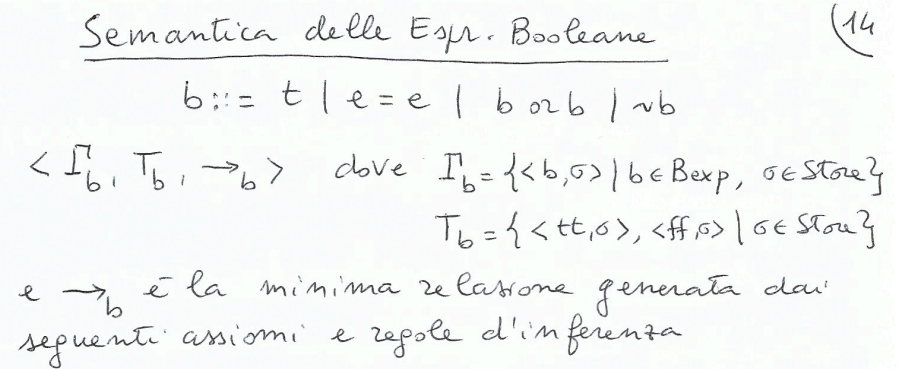 Semantica delle Espr. Booleane (14
b ::= t | e = e | b or b | ~b
< Γb, Tb, →b > dove Γb = {<b,σ> | b ∈ Bexp, σ ∈ Store}
Tb = {<tt,σ>, <ff,σ> | σ ∈ Store}
e →b è la minima relazione generata dai
seguenti assiomi e regole d'inferenza